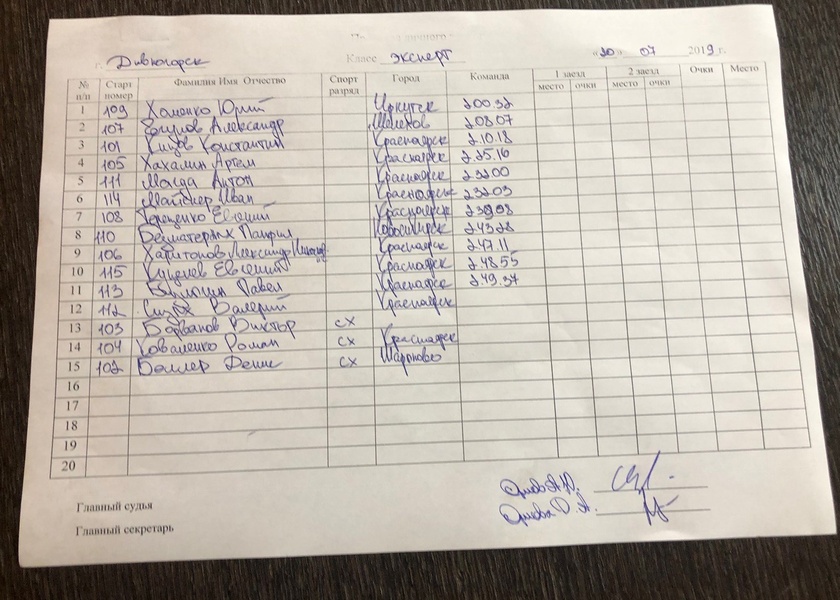 г. Дивногорск Класс эксперт «20» 07 2019 г.
№ п/п Старт номер Фамилия Имя Отчество Спорт разряд Город Команда 1 заезд 2 заезд Очки Место
место очки место очки
1 109 Хоменко Юрий Иркутск 2.00.32
2 107 Александр Шелехов 2.08.07
3 101 Константин Красноярск 2.10.18
4 105 Хахалин Артем Красноярск 2.25.16
5 111 Магда Антон Красноярск 2.32.00
6 114 Иван Красноярск 2.32.03
7 108 Терещенко Евгений Красноярск 2.39.08
8 110 Безматерных Памфил Новосибирск 2.43.28
9 106 Харитонов Александр Красноярск 2.47.11
10 115 Евгений Красноярск 2.48.55
11 113 Павел Красноярск 2.49.37
12 112 Валерий Красноярск
13 103 Виктор сх
14 104 Коваленко Роман сх Красноярск
15 102 Беллер Денис сх Шарыпово
16
17
18
19
20
Главный судья
Главный секретарь